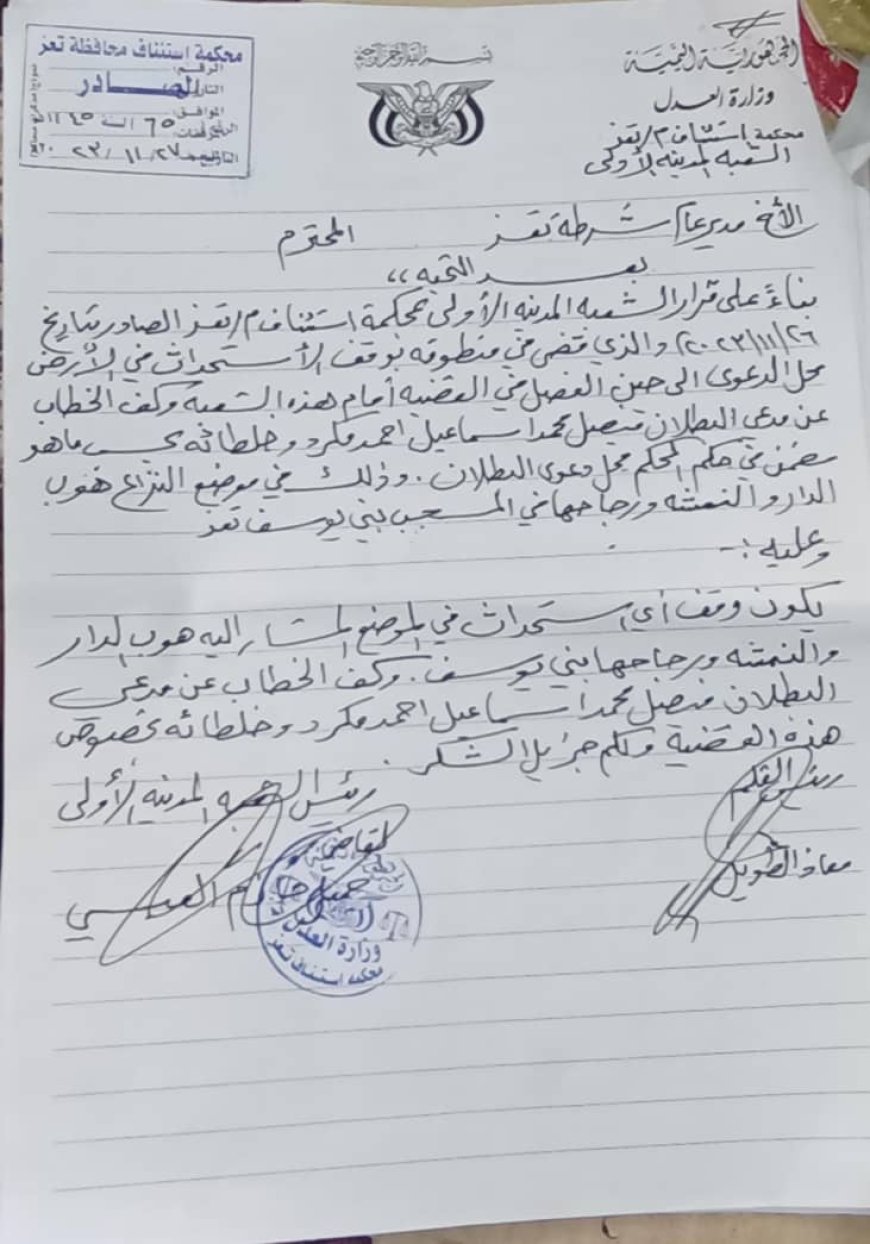 الجمهورية اليمنية
وزارة العدل
محكمة استئناف م/تعز
الشعبة المدنية الأولى
بسم الله الرحمن الرحيم
محكمة استئناف محافظة تعز
الرقم:
الصادر
الموافق:
٦٥ لسنة ١٤٤٥
٢٠٢٣/١١/٢٧
الأخ مدير عام شرطة تعز المحترم
بعد التحية ،،
بناءً على قرار الشعبه المدنيه الأولى بمحكمة استئناف م/تعز الصادر بتاريخ
٢٠٢٣/١١/٢٦ والذي قضى في منطوقه بوقف الأستحداث في الأرض
محل الدعوى الى حين الفصل في القضيه أمام هذه الشعبه وكف الخطاب
عن مدعي البطلان فيصل محمد اسماعيل احمد مكرد وخلطائه بحسب ماهو
مضمن في حكم المحكم محل دعوى البطلان . وذلك في موضع النزاع هوب
الدار والنمشه ورجاحها في المسجب بني يوسف تعز
وعليه :-
يكون وقف أي استحداث في الموضع المشار اليه هوب الدار
والنمشه ورجاحها بني يوسف . وكف الخطاب عن مدعي
البطلان فيصل محمد اسماعيل احمد مكرد وخلطائه بخصوص
هذه القضية ولكم جزيل الشكر .
رئيس القلم
معاذ الطويل
رئيس الشعبه المدنيه الأولى
القاضي
جميل
وزارة العدل
محكمة استئناف تعز